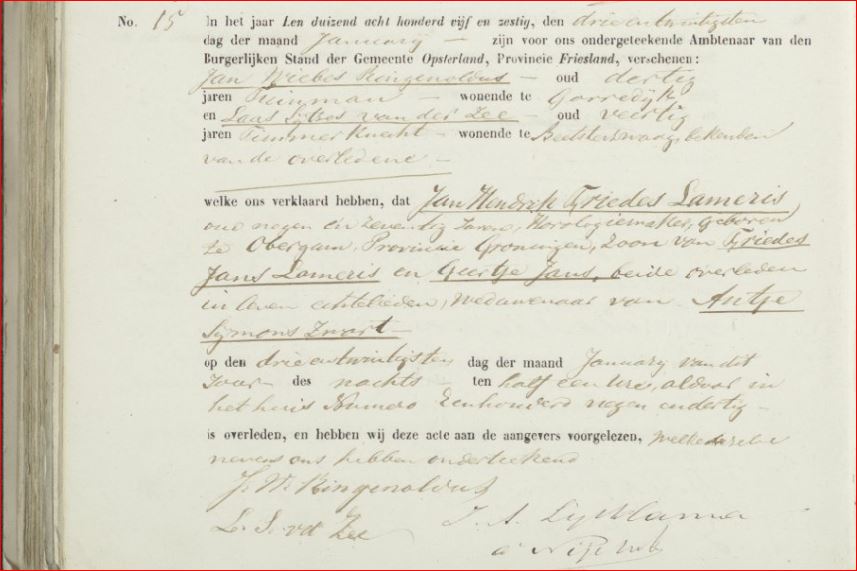 No. 15 In het jaar Een duizend acht honderd vijf en zestig, den drieentwintigsten
dag der maand January – zijn voor ons ondergeteekende Ambtenaar van den
Burgerlijken Stand der Gemeente Opsterland, Provincie Friesland, verschenen:
Jan Wiebes Ringenoldus – oud dertig
jaren Tuinman – wonende te Gorredijk
en Laas Sytzes van der Zee – oud veertig
jaren Timmerknecht – wonende te Beetsterzwaag, bekenden
van de overledene –
welke ons verklaard hebben, dat Jan Hendrik Friedes Lameris,
oud negen en zeventig Jaren, Horologiemaker, geboren
te Obergum, Provincie Groningen, Zoon van Friedes
Jans Lameris en Geertje Jans, beide overleden
in leven echtelieden, Weduwenaar van Antje
Symons Zwart –
op den drieentwintigsten dag der maand January van dit
Jaar des nachts – ten half een ure, aldaar in
het huis Numero Eenhonderd negen endertig –
is overleden, en hebben wij deze acte aan de aangevers voorgelezen, welke dezelve
nevens ons hebben onderteekend
J. W. Ringenoldus
L. S. vd Zee